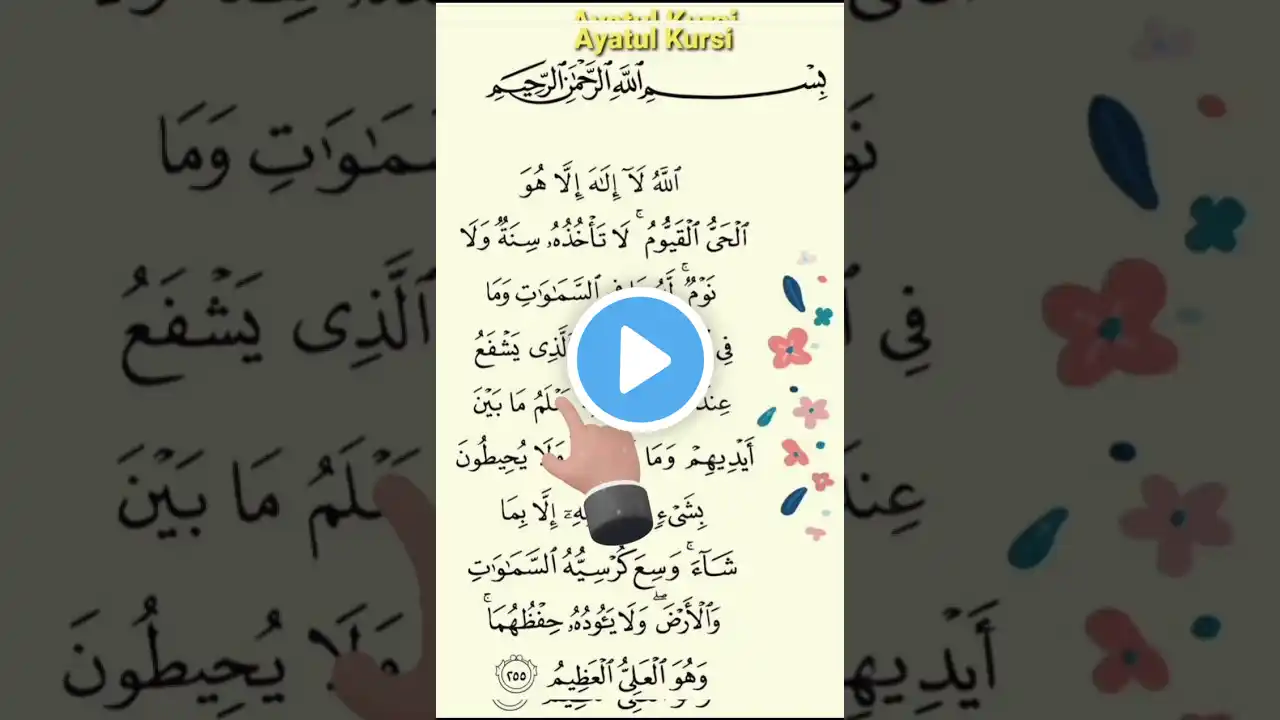 Ayatul Kursi
بِسۡمِ ٱللَّهِ ٱلرَّحۡمَٰنِ ٱلرَّحِيمِ
ٱللَّهُ لَآ إِلَٰهَ إِلَّا هُوَ
ٱلۡحَىُّ ٱلۡقَيُّومُۚ لَا تَأۡخُذُهُۥ سِنَةٌ وَلَا
نَوۡمٌۚ ٱلسَّمَٰوَٰتِ وَمَا
فِي ٱلَّذِى يَشۡفَعُ
مَا بَيۡنَ
أَيۡدِيهِمۡ وَمَا وَلَا يُحِيطُونَ
بِشَىۡءٍ إِلَّا بِمَا
شَآءَۚ وَسِعَ كُرۡسِيُّهُ ٱلسَّمَٰوَٰتِ
وَٱلۡأَرۡضَۖ وَلَا يَـُٔودُهُۥ حِفۡظُهُمَاۚ
وَهُوَ ٱلۡعَلِىُّ ٱلۡعَظِيمُ ٢٥٥